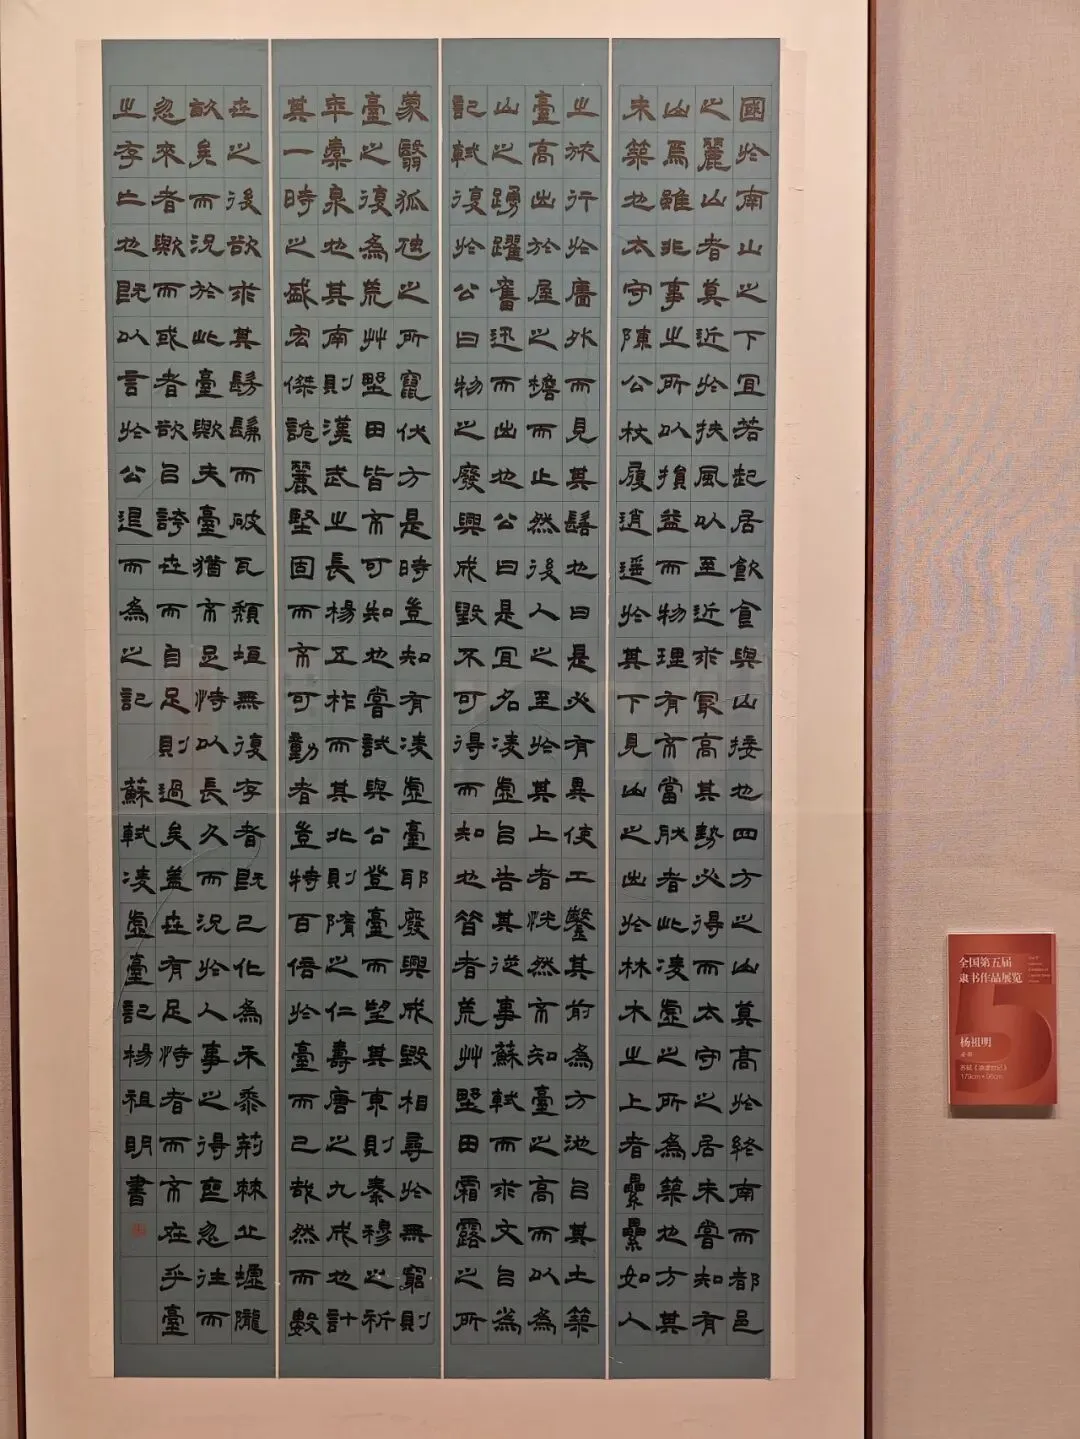 國於南山之下宜若起居飲食與山接也四方之山莫高於終南而都邑
之麗山者莫近於扶風以至近求冣高其勢必得而太守之居未嘗知有
山焉雖非事之所以損益而物理有不當然者此凌虛之所為築也方其
未築也太守陳公杖履逍遙於其下見山之出於林木之上者纍纍如人
之旅行於牆外而見其髻也曰是必有異使工鑿其前為方池㠯其土築
臺高出於屋之檐而止然後人之至於其上者恍然不知臺之高而以為
山之踴躍奮迅而出也公曰是宜名凌虛㠯告其從事蘇軾而求文㠯為
記軾復於公曰物之廢興成毀不可得而知也昔者荒艸野田霜露之所
蒙翳狐虺之所竄伏方是時豈知有凌虛臺耶廢興成毀相尋於無窮則
臺之復為荒艸野田皆不可知也嘗試與公登臺而望其東則秦穆之祈
年橐泉也其南則漢武之長楊五柞而其北則隋之仁壽唐之九成也計
其一時之盛宏傑詭麗堅固而不可動者豈特百倍於臺而已哉然而數
世之後欲求其髣髴而破瓦頹垣無復存者既已化為禾黍荊棘丘墟隴
畝矣而況於此臺歟夫臺猶不足恃以長久而況於人事之得喪忽往而
忽來者歟而或者欲㠯誇世而自足則過矣蓋世有足恃者而不在乎臺
之存亡也既以言於公退而為之記 蘇軾凌虛臺記楊祖明書
全国第五届
隶书作品展览
杨祖明
苏轼《凌虚台记》
179cm×96cm